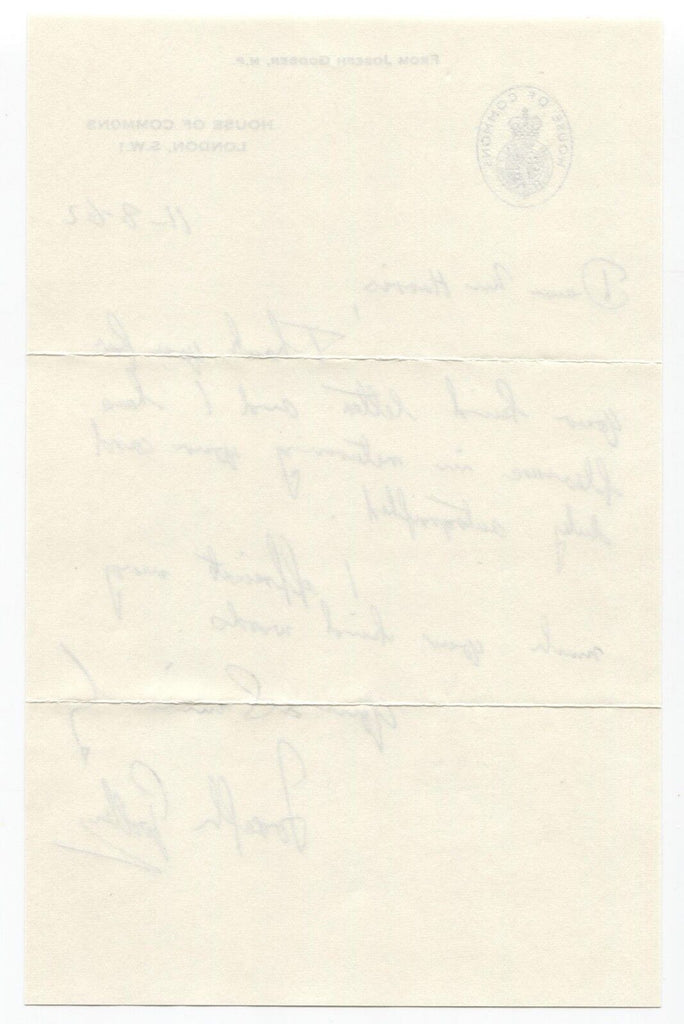 FROM JOSEPH GODBER, M.P.
HOUSE OF COMMONS
HOUSE OF COMMONS
LONDON, S.W.1
11-8-62
Dear Mr Harris,
Thank you for
your kind letter and I have
pleasure in returning your card
duly autographed.
I appreciate very
much your kind words
Yours Sincerely
Joseph Godber